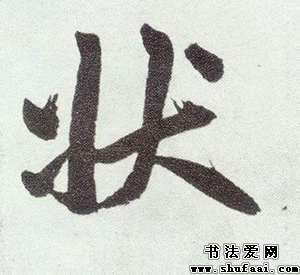 状
书法爱网
www.shufaai.com